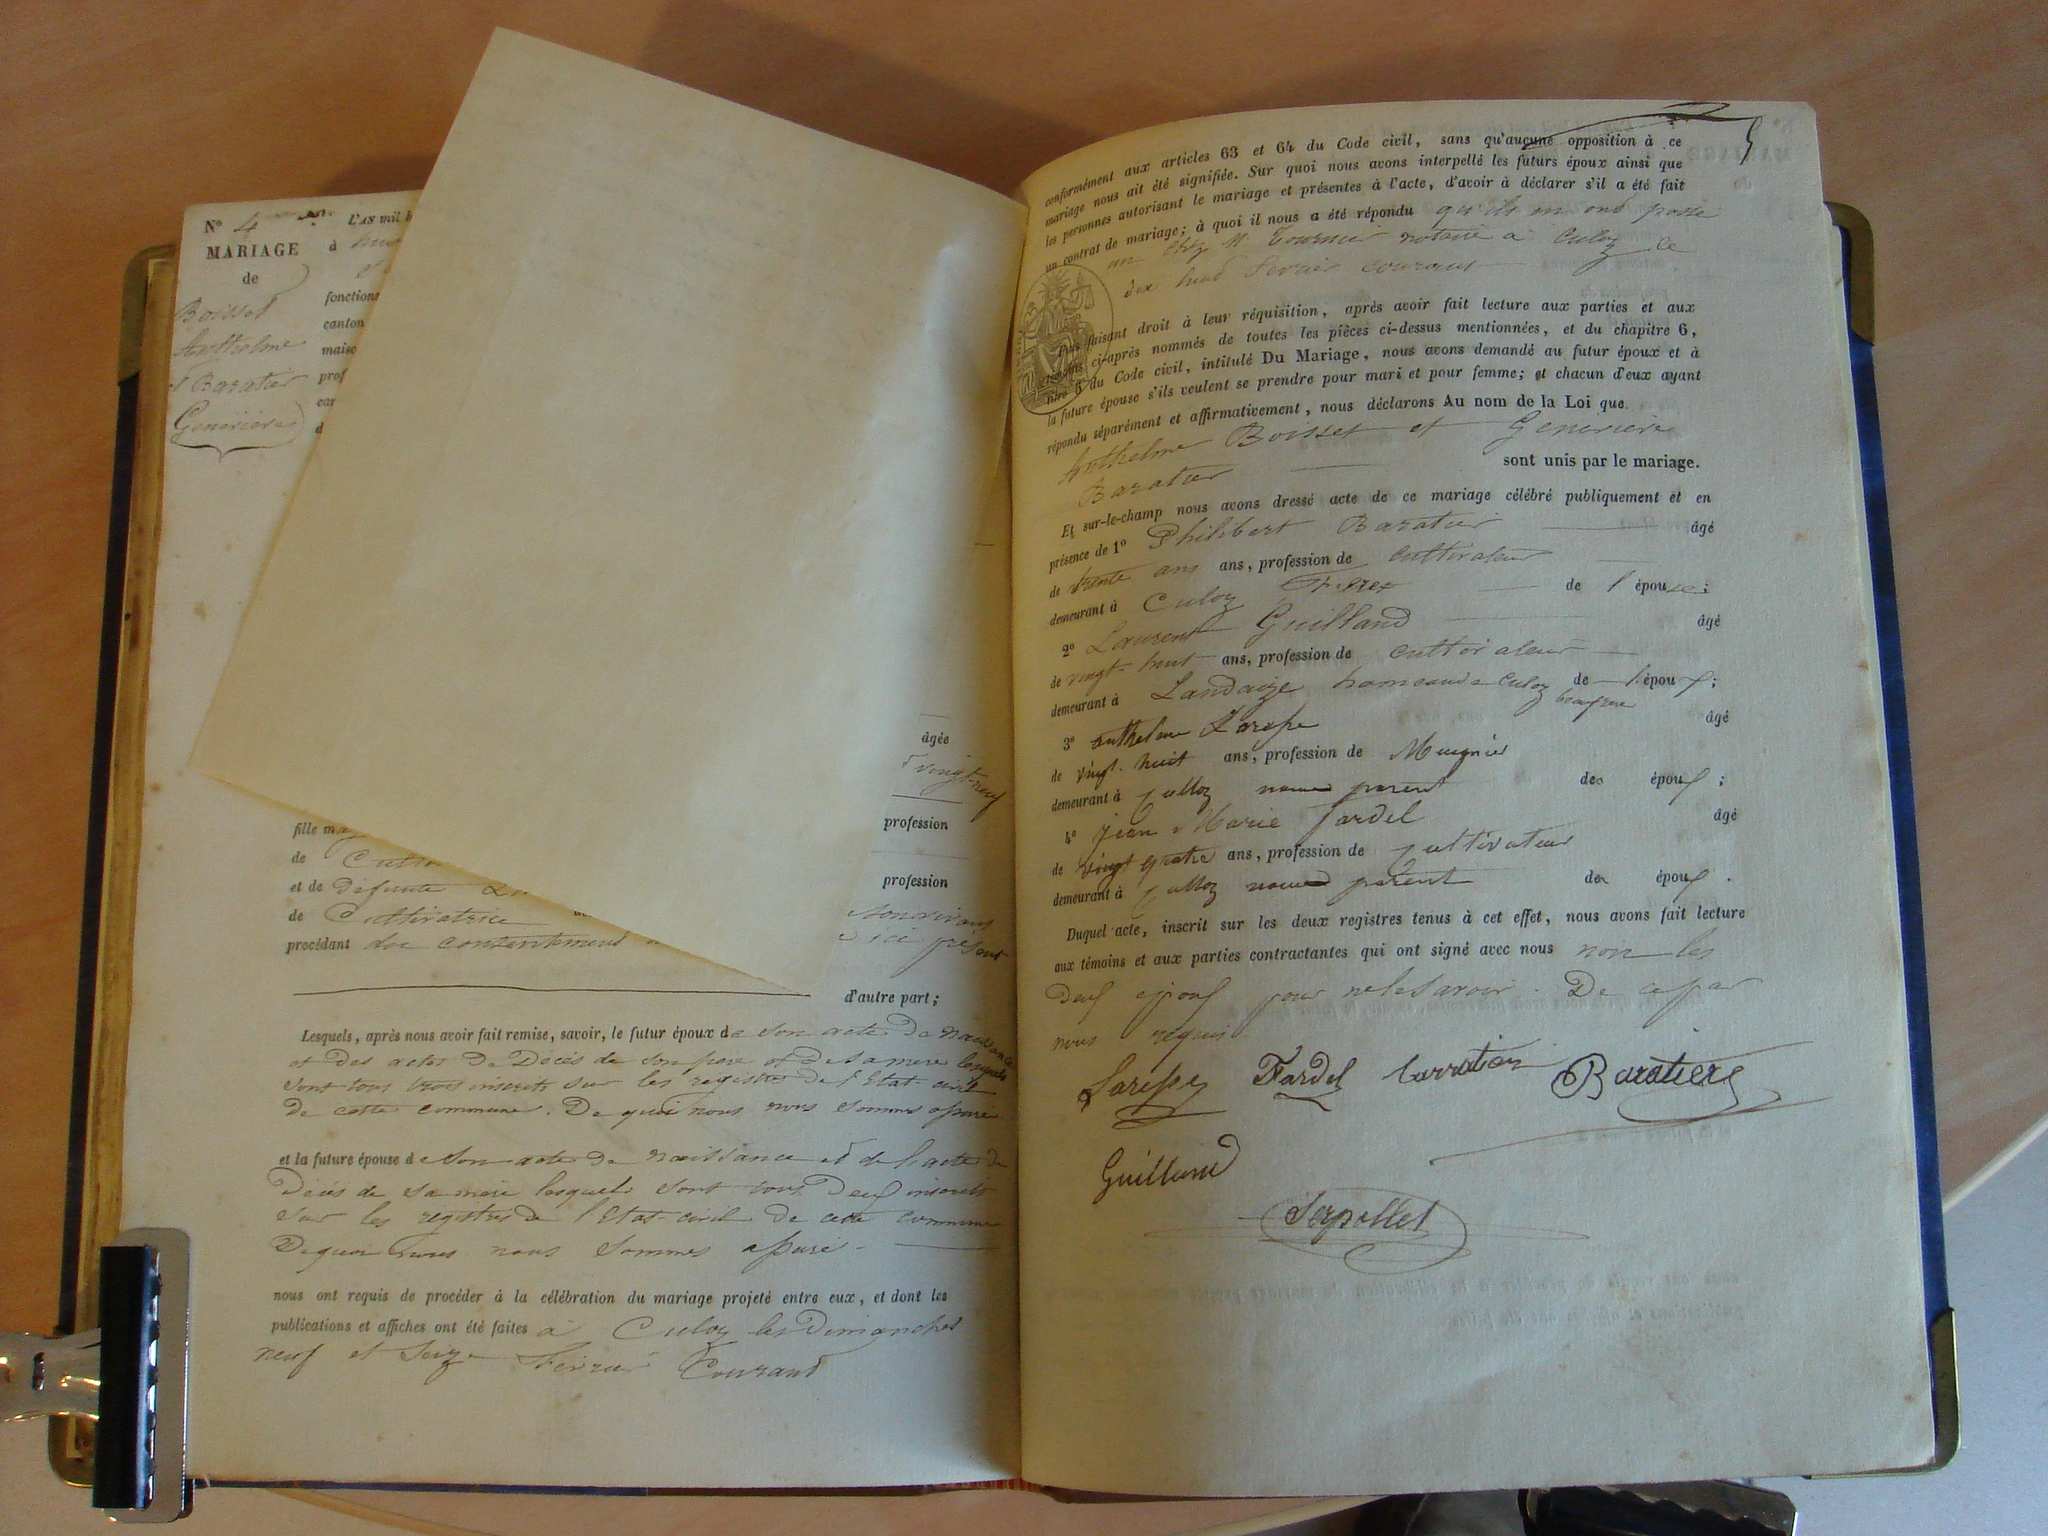 N° 4
MARIAGE
de
Boisset
Anthelme
et Baratier
Geneviève
L'AN mil
à
fonctions
canton
maiso
prof
âgée
vingt-neuf
fille ma
profession
de
et de défunte
profession
de Cultivatrice
procédant du consentement
ici présent
d'autre part;
Lesquels, après nous avoir fait remise, savoir, le futur époux de son acte de naissance
et des actes de Décès de son père et de sa mère lesquels
sont tous trois inscrits sur les registres de l'Etat-civil
de cette commune. De quoi nous nous sommes assuré
et la future épouse de son acte de naissance et de l'acte de
Décès de sa mère lesquels sont tous deux inscrits
sur les registres de l'Etat-civil de cette commune
De quoi nous nous sommes assuré
nous ont requis de procéder à la célébration du mariage projeté entre eux, et dont les
publications et affiches ont été faites à Culoz les Dimanches
neuf et seize Février Courant
conformément aux articles 63 et 64 du Code civil, sans qu'aucune opposition à ce
mariage nous ait été signifiée. Sur quoi nous avons interpellé les futurs époux ainsi que
les personnes autorisant le mariage et présentes à l'acte, d'avoir à déclarer s'il a été fait
un contrat de mariage; à quoi il nous a été répondu qu'ils en ont passé
un chez Me Tournier notaire à Culoz le
dix huit Février courant
faisant droit à leur réquisition, après avoir fait lecture aux parties et aux
témoins ci-après nommés de toutes les pièces ci-dessus mentionnées, et du chapitre 6,
titre 5 du Code civil, intitulé Du Mariage, nous avons demandé au futur époux et à
la future épouse s'ils veulent se prendre pour mari et pour femme; et chacun d'eux ayant
répondu séparément et affirmativement, nous déclarons Au nom de la Loi que
Anthelme Boisset et Geneviève
Baratier sont unis par le mariage.
Et sur-le-champ nous avons dressé acte de ce mariage célébré publiquement et en
présence de 1° Philibert Baratier âgé
de trente ans ans, profession de cultivateur
demeurant à Culoz frère de l'épouse;
2° Laurent Guilland âgé
de vingt-huit ans, profession de cultivateur
demeurant à Landaize hameau de Culoz de l'époux;
3° anthelme Larepe âgé
de vingt-huit ans, profession de Mugnier
demeurant à Culloz parent des époux;
4° jean Marie fardel âgé
de vingt quatre ans, profession de cultivateur
demeurant à Culloz parent des époux.
Duquel acte, inscrit sur les deux registres tenus à cet effet, nous avons fait lecture
aux témoins et aux parties contractantes qui ont signé avec nous non les
deux époux pour ne le savoir. De ce par
nous requis
Larepe Fardel Barratier Baratier
Guilland
Serpollet